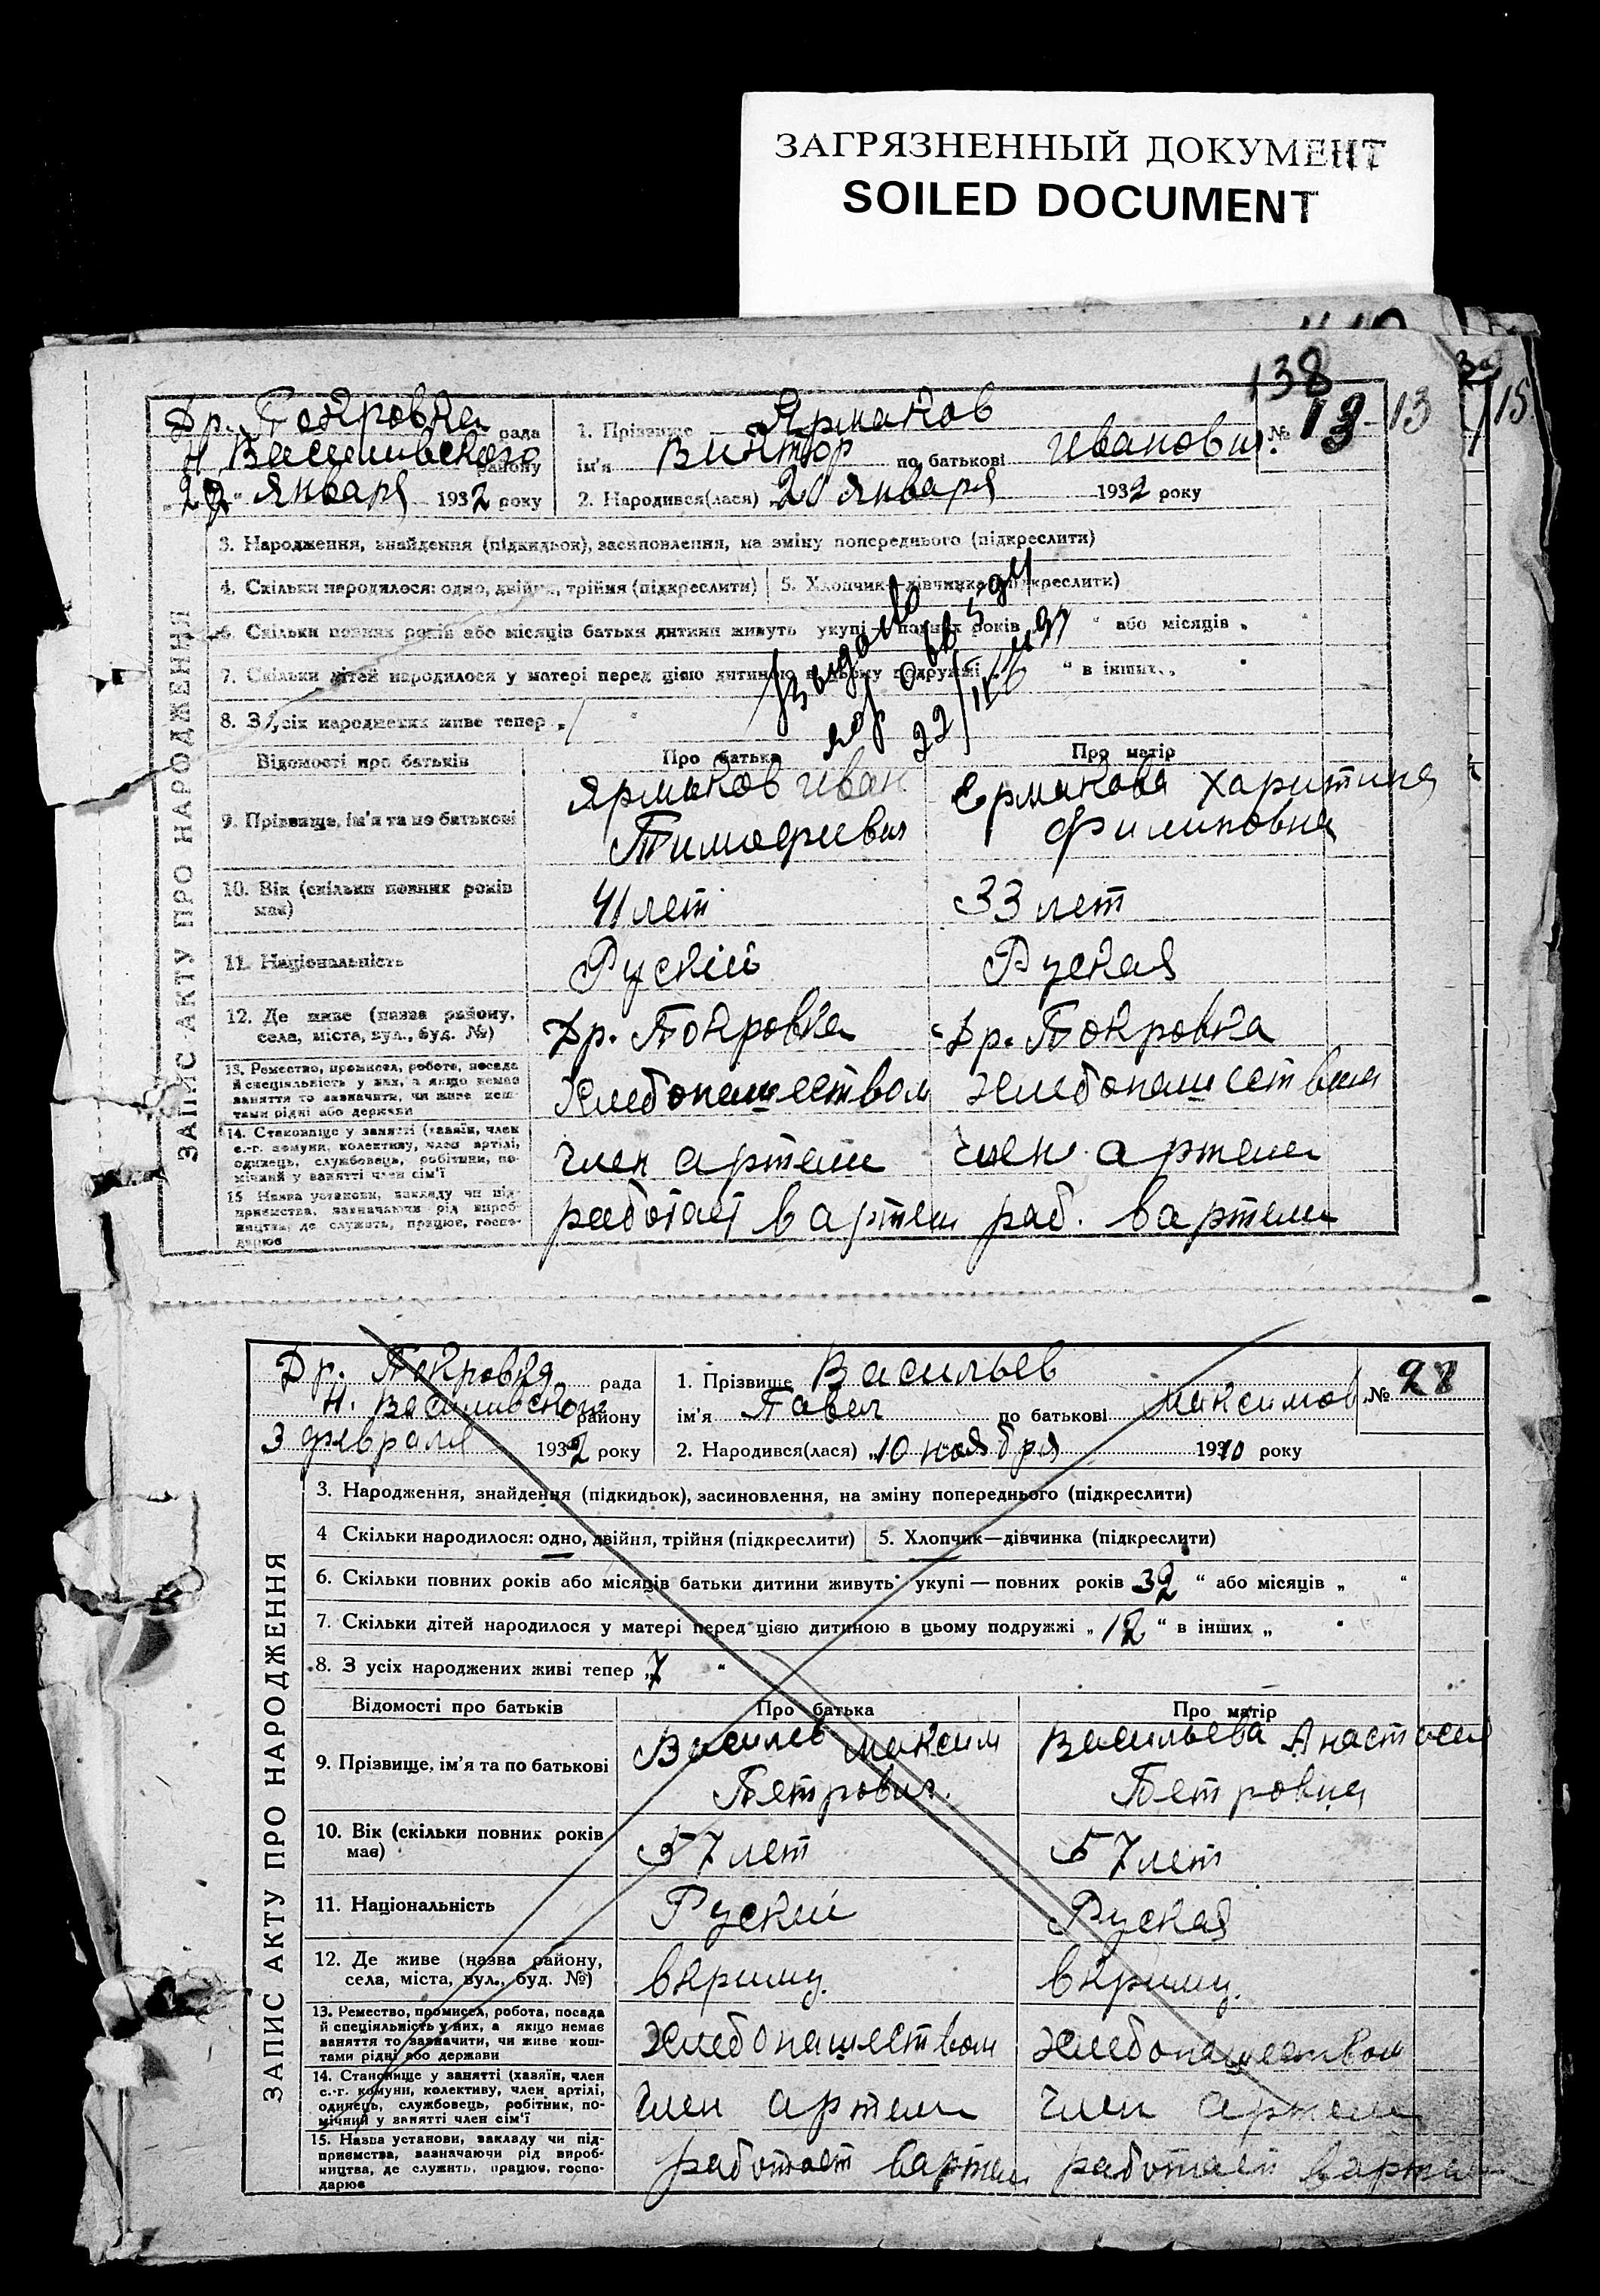 ЗАГРЯЗНЕННЫЙ ДОКУМЕНТ
SOILED DOCUMENT
138
13 13 15
Др. Покровка рада
Н Василивского району
22 " Января 1932 року
1. Прізвище Ярмаков
ім'я Виктор по батькові Иванович. № 13
2. Народився(лася) 20 Января 1932 року
ЗАПИС АКТУ ПРО НАРОДЖЕННЯ
3. Народження, знайдення (підкидьок), засиновлення, на зміну попереднього (підкреслити)
4. Скільки народилося: одно, двійня, трійня (підкреслити) 5. Хлопчик—дівчинка (підкреслити)
6. Скільки повних років або місяців батьки дитини живуть укупі — повних років " або місяців „
7. Скільки дітей народилося у матері перед цією дитиною в цьому подружжі " в інших „
8. З усіх народжених живе тепер „
Відомості про батьків Про батька Про матір
9. Прізвище, ім'я та по батькові Ярмаков Иван Ермакова Харитина
Тимофиевич Филиповна
10. Вік (скільки повних років має) 41 лет 33 лет
11. Національність Рускій Руская
12. Де живе (назва району, села, міста, вул., буд. №) Др. Покровка Др. Покровка
13. Ремество, промисел, робота, посада й спеціяльність у них, а якщо немає заняття то зазначити, чи живе кош- тами рідні або держави Хлебопашеством Хлебопашеством
14. Становище у занятті (хазяїн, член с.-г. комуни, колективу, член артілі, одинець, службовець, робітник, по- мічний у занятті член сім'ї Член артели Член артели
15 Назва установи, закладу чи під- приємства, зазначаючи рід вироб- ництва, де служить, працює, госпо- дарює работает в артели раб. в артели
Др. Покровка рада
Н. Василивского району
3 февраля 1932 року
1. Прізвище Васильев
ім'я Павел по батькові Максимов № 28
2. Народився(лася) „10 ноября 1910 року
ЗАПИС АКТУ ПРО НАРОДЖЕННЯ
3. Народження, знайдення (підкидьок), засиновлення, на зміну попереднього (підкреслити)
4 Скільки народилося: одно, двійня, трійня (підкреслити) 5. Хлопчик—дівчинка (підкреслити)
6. Скільки повних років або місяців батьки дитини живуть укупі — повних років 32 " або місяців „ "
7. Скільки дітей народилося у матері перед цією дитиною в цьому подружжі „ 12 " в інших „ "
8. З усіх народжених живі тепер „7 "
Відомості про батьків Про батька Про матір
9. Прізвище, ім'я та по батькові Василев Максим Васильева Анастасея
Петрович. Петровна
10. Вік (скільки повних років має) 57 лет 57 лет
11. Національність Руский Руская
12. Де живе (назва району, села, міста, вул., буд. №) вкриму. вкриму.
13. Ремество, промисел, робота, посада й спеціяльність у них, а якщо немає заняття то зазначити, чи живе кош- тами рідні або держави Хлебопашеством Хлебопашеством
14. Становище у занятті (хазяїн, член с.-г. комуни, колективу, член артілі, одинець, службовець, робітник, по- мічний у занятті член сім'ї Член артели Член артели
15. Назва установи, закладу чи під- приємства, зазначаючи рід вироб- ництва, де служить, працює, госпо- дарює работает вартели работает вартели